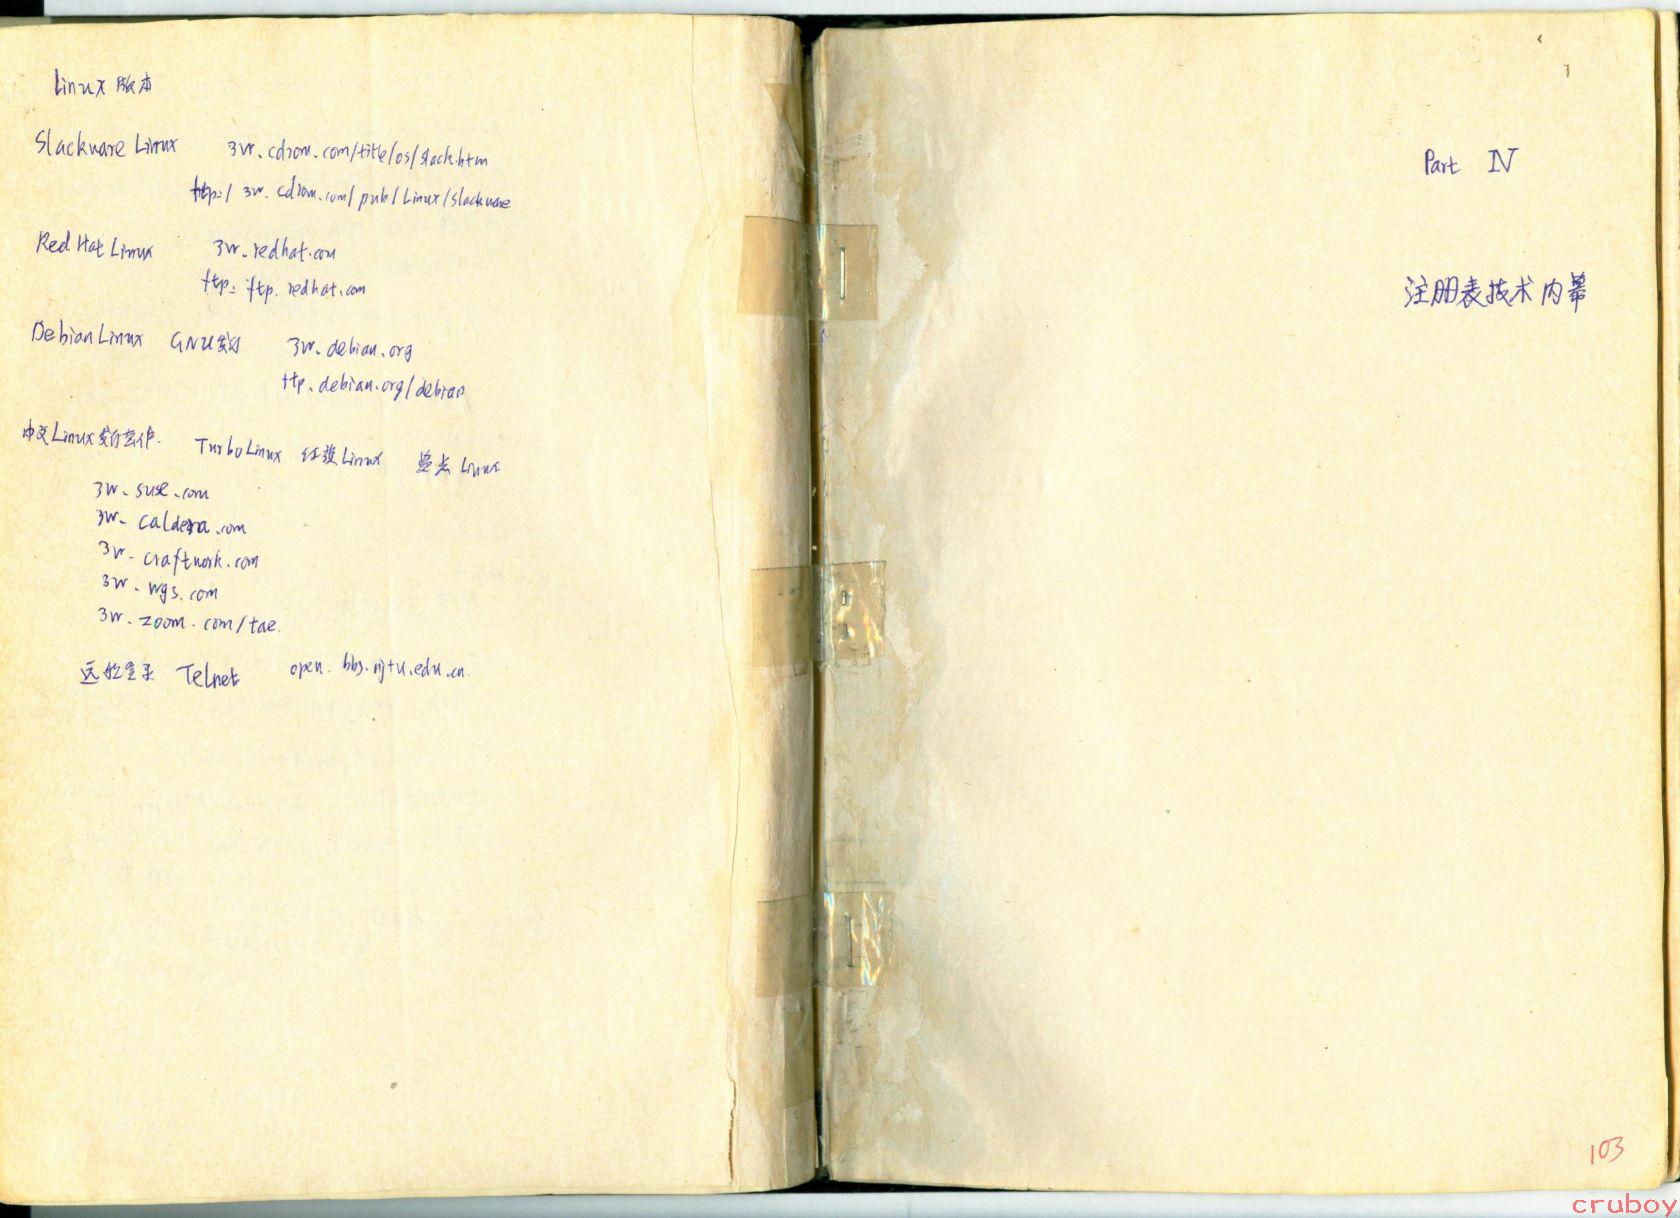 Linux 版本
Slackware Linux 3w.cdrom.com/title/os/slack.htm
ftp:/ 3w.cdrom.com/pub/Linux/slackware
Red Hat Linux 3w.redhat.com
ftp: ftp.redhat.com
Debian Linux GNU发行 3w.debian.org
ftp.debian.org/debian
中文Linux发行套件. TurboLinux 红旗Linux 蓝点Linux
3w.suse.com
3w.caldera.com
3w.craftwork.com
3w.wgs.com
3w.zoom.com/tae.
远程登录 Telnet open. bbs.njtu.edu.cn.
Part IV
注册表技术内幕
103
cruboy